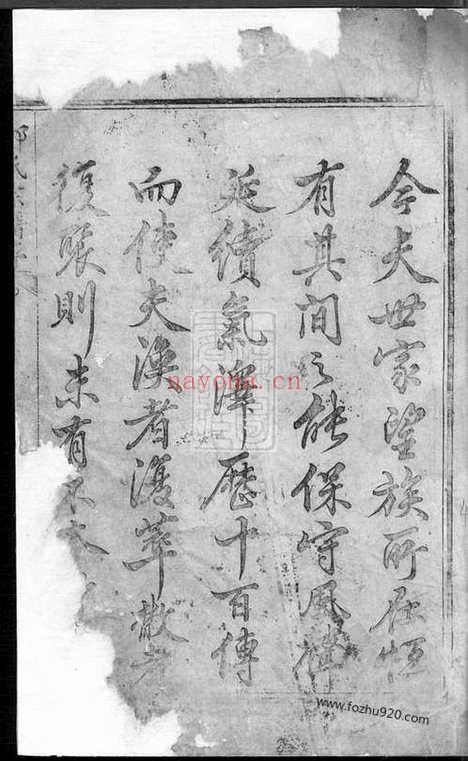 今夫世家望族所在恒
有其間之能保守風
延續氣澤歷十百傳
而使夫渙者復萃散者
復聚則未有不
nayona.cn
www.fozhu920.com